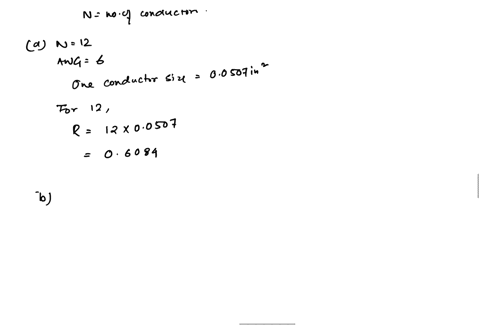 N = no. of conductor.
(a) N = 12
AWG = 6
One conductor size = 0.0507 in²
For 12,
R = 12 × 0.0507
= 0.6084
b)